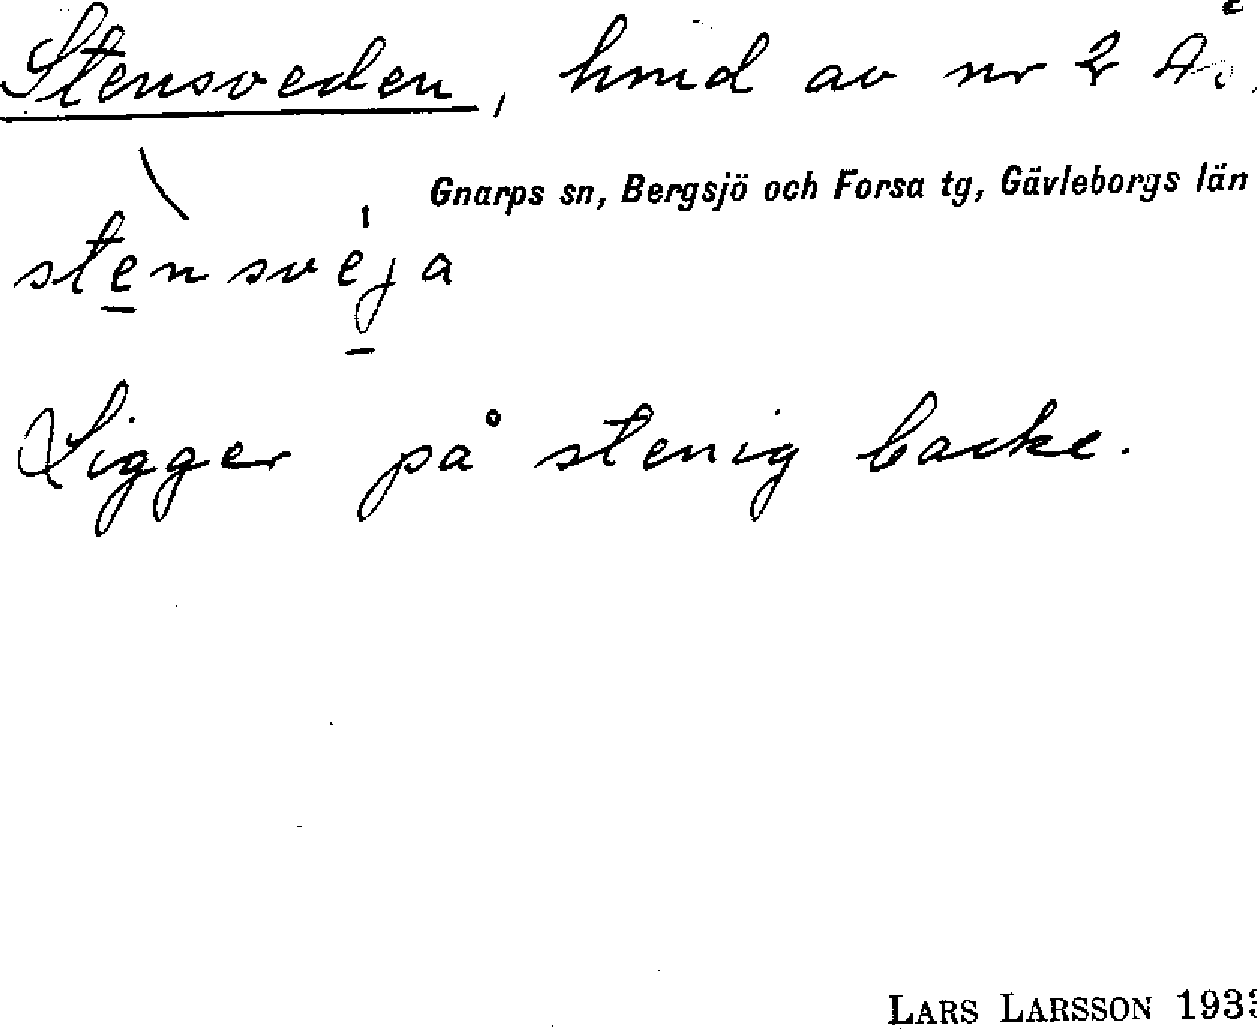 Stensveden, hmd av nr 2
Gnarps sn, Bergsjö och Forsa tg, Gävleborgs län
stensveja
Ligger på stenig backe.
LARS LARSSON 1933